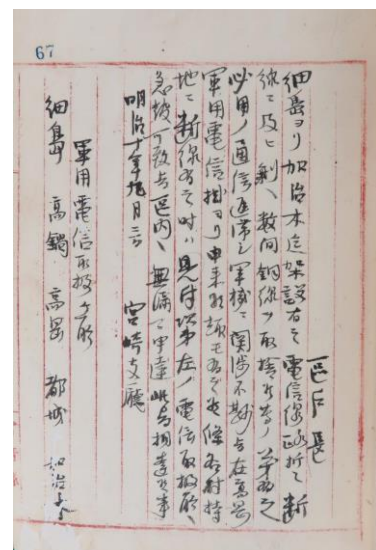 67
區戸長
細島ヨリ加治木迄架設有之電信線路折々断
線ニ及ヒ剰ヘ数間銅線ヲ取捨候
必用ノ通信遅滞シ軍機ニ関渉不尠旨在高岡
軍用電信掛ヨリ申来候
地ニ断線有之時ハ見付次第左ノ電信取扱所ヘ
急報可致旨區内ヘ無漏可申達此旨相達候事
明治十年九月三日 宮崎支廳
軍用電信取扱所
細島 高鍋 高岡 都城 加治木